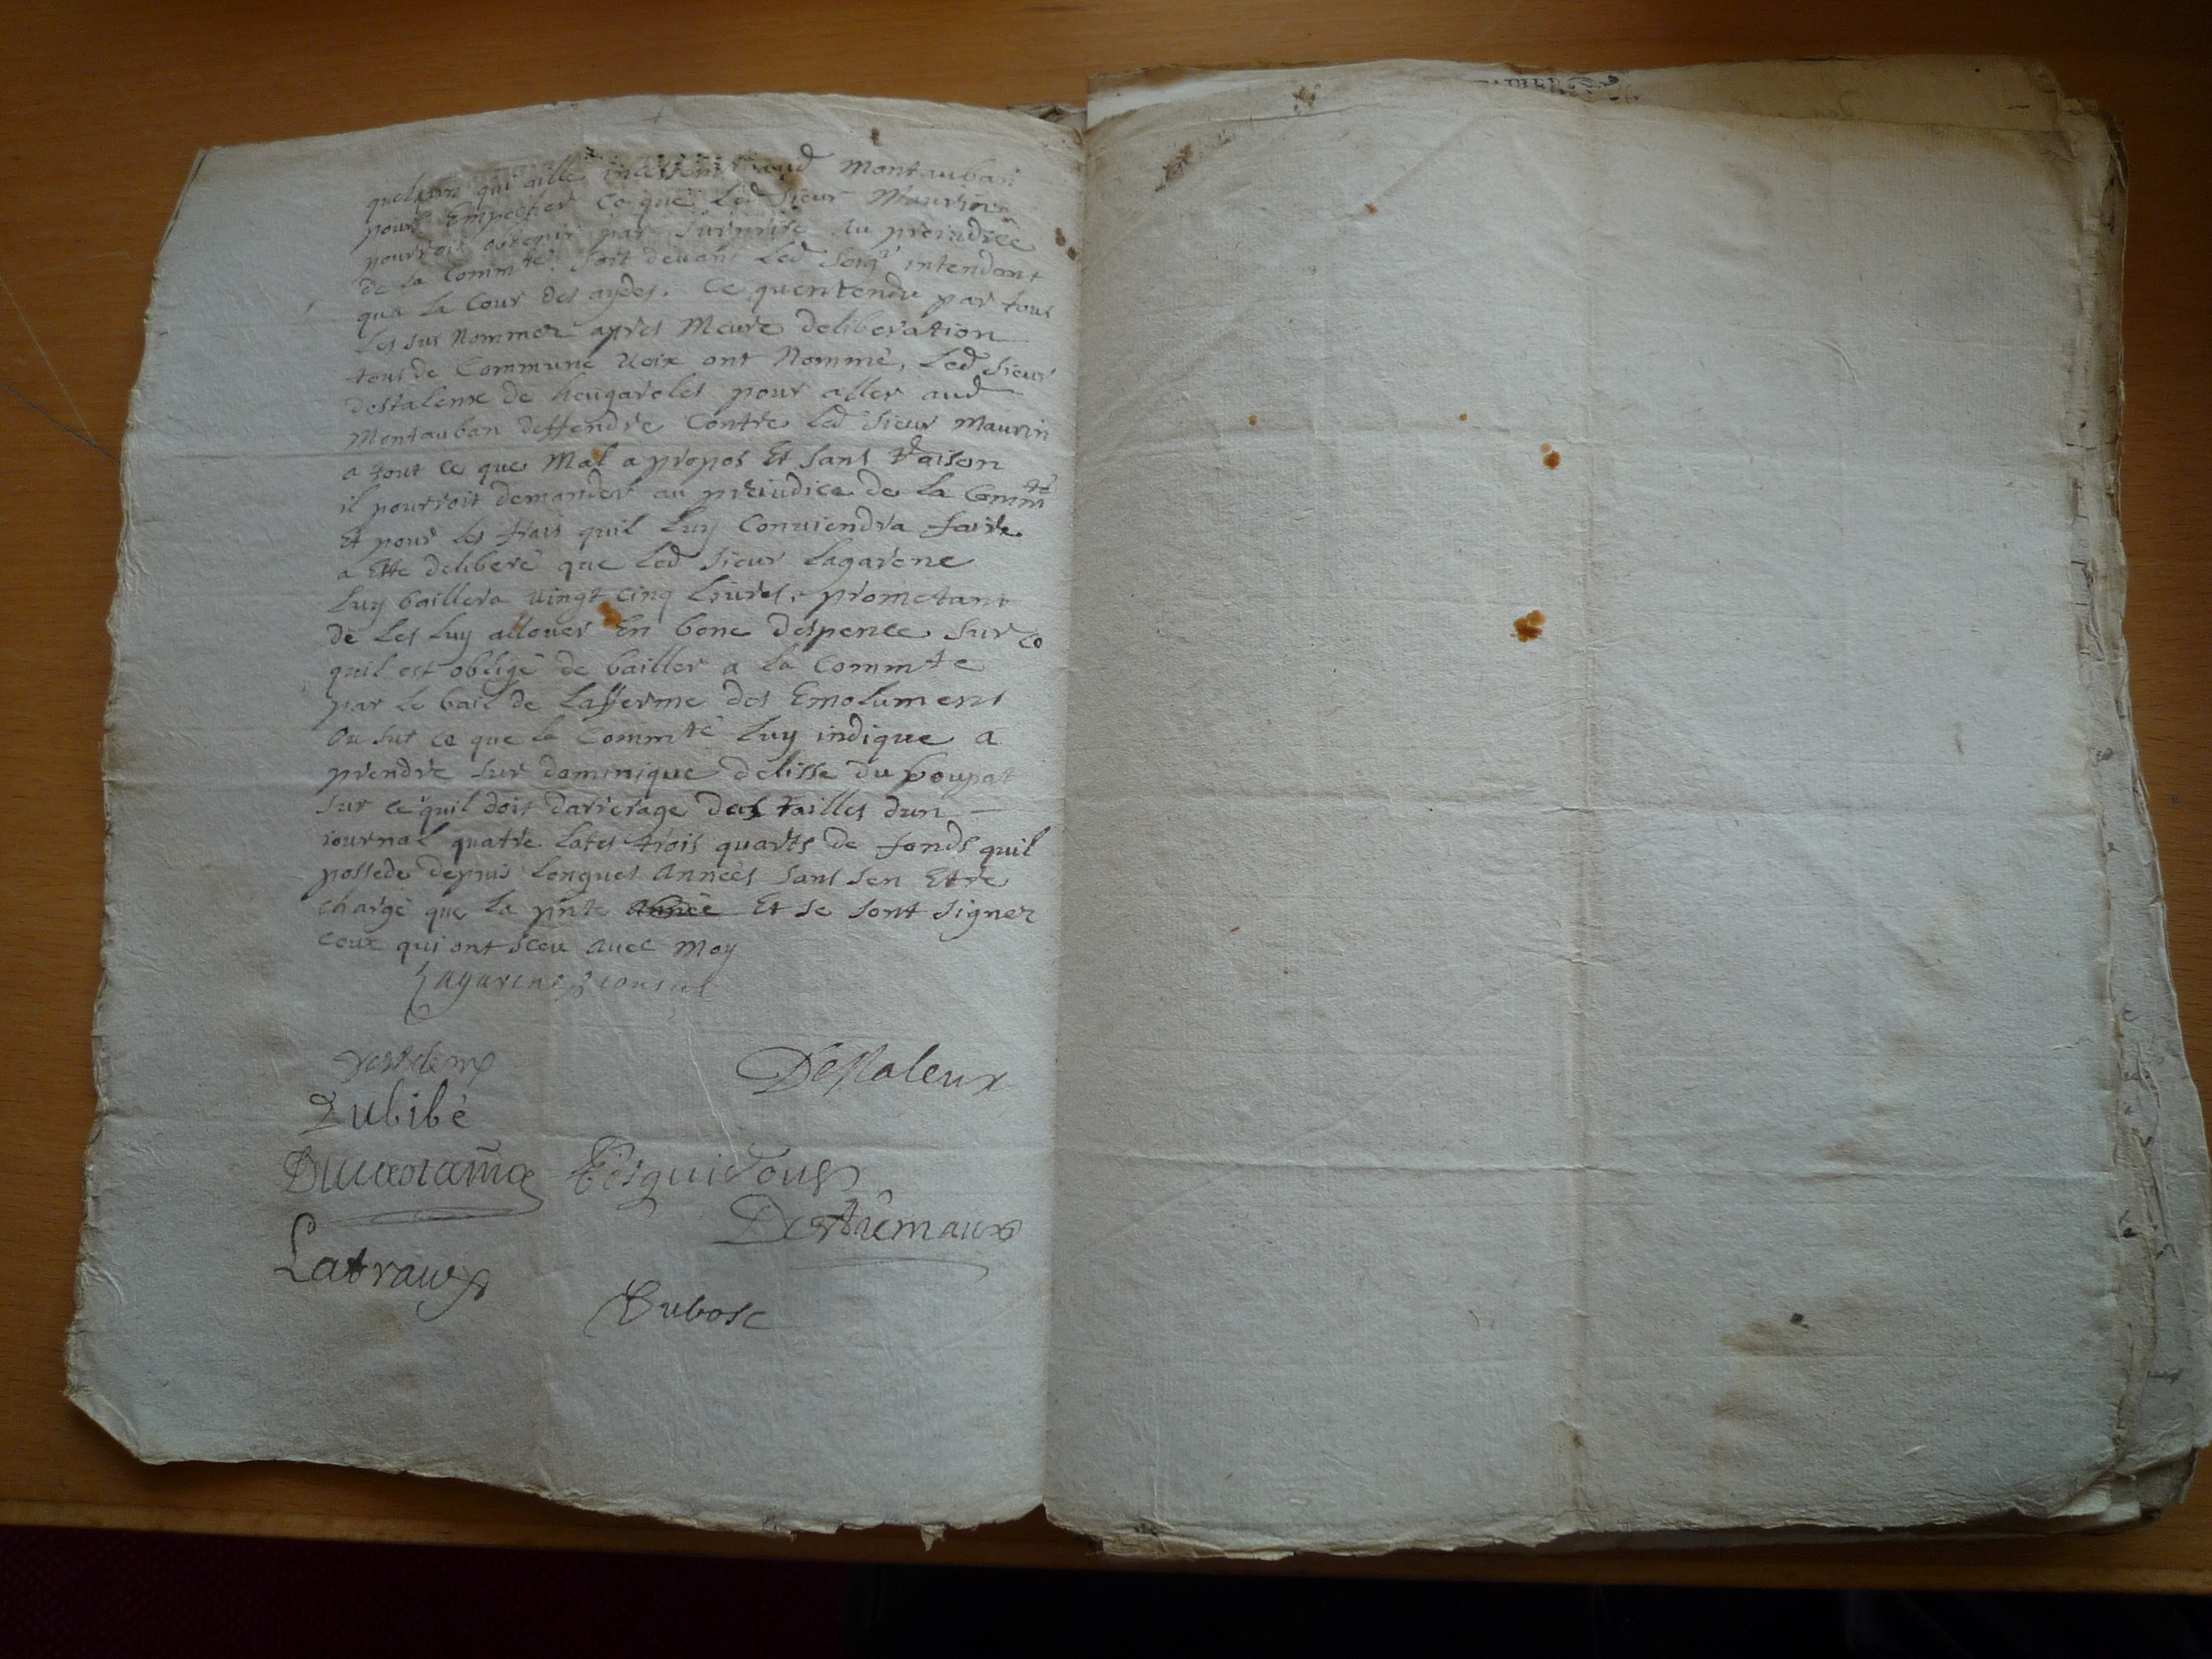 quelqun qui aille incessemt aud Montauban
pour Empecher ce que led sieur Maurin
pourroit obtenir par surprise au preiudice
de la Commté. soit devant led seigr intendant
qua la Cour des aydes. Ce quentendu par tous
les sus Nommez apres Meure deliberation
tous de Commune Voix ont Nommé, led sieur
destaleme de heugaroles pour aller aud
Montauban deffendre Contre led sieur Maurin
a tout ce que Mal a propos Et sans Raison
il pourroit demander au preiudice de la Commté
Et pour les frais quil luy Conviendra faire
a Este deliberé que led sieur Lagarene
luy baillera vingt cinq Livres, prometant
de les luy allouer En bone despence sur ce
quil est obligé de bailler a la Commté
par le bail de lafferme des Emolumens
Ou sur ce que la Commté luy indique a
prendre sur dominique delisse du poupat
sur ce quil doit darrerage des tailles dun
journal quatre lates trois quarts de fonds quil
possede depuis longues Années sans sen Etre
chargé que la pnte Année Et se sont signez
ceux qui ont sceu avec Moy
Lagarene consul
Destaleux
Dubibé
Tesquidous
Destremaux
Latraux
Dubosc